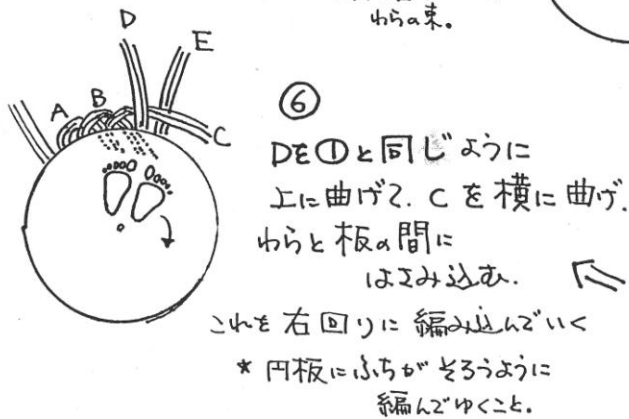 わらの束。
D
E
A
B
C
⑥
Dを①と同じように
上に曲げて、Cを横に曲げ、
わらと板の間に
はさみ込む。
これを右回りに編み込んでいく
* 円板にふちがそろうように
編んでゆくこと。